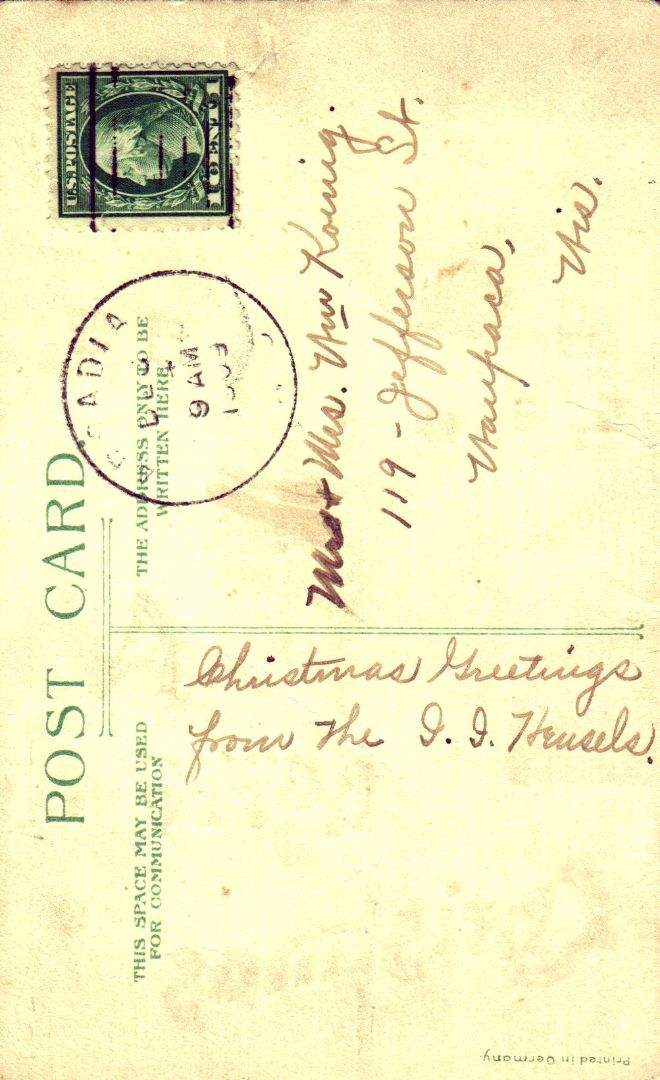 POST CARD.
THIS SPACE MAY BE USED
FOR COMMUNICATION
THE ADDRESS ONLY TO BE
WRITTEN HERE
U.S. POSTAGE
1 CENT 1
9 AM
1909
Christmas Greetings
from the I. I. Hensels.
Mr + Mrs. Wm Koenig.
119 - Jefferson St.
Waupaca,
Wis.
Printed in Germany